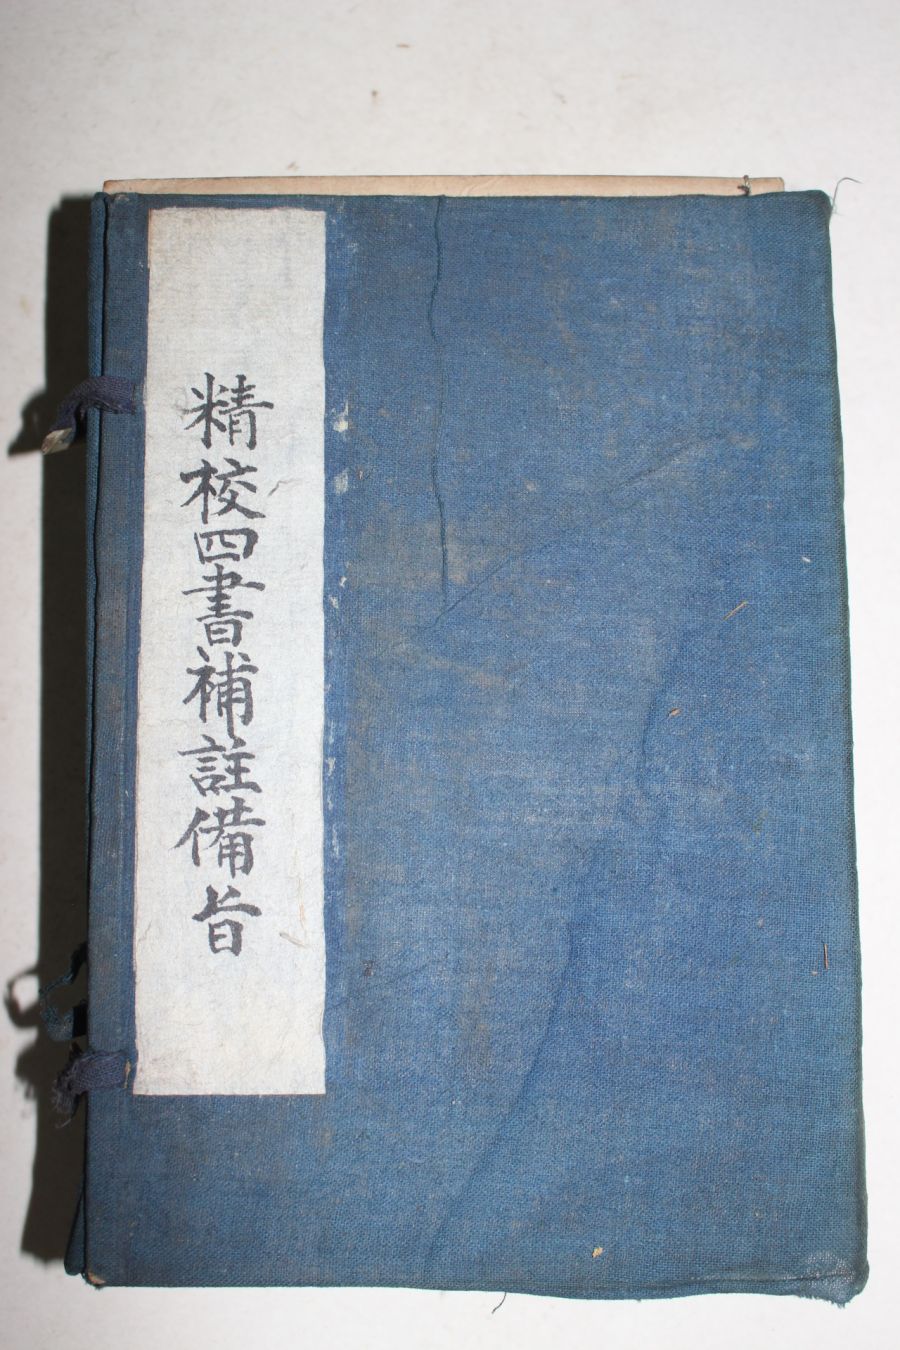 精校四書補註備旨